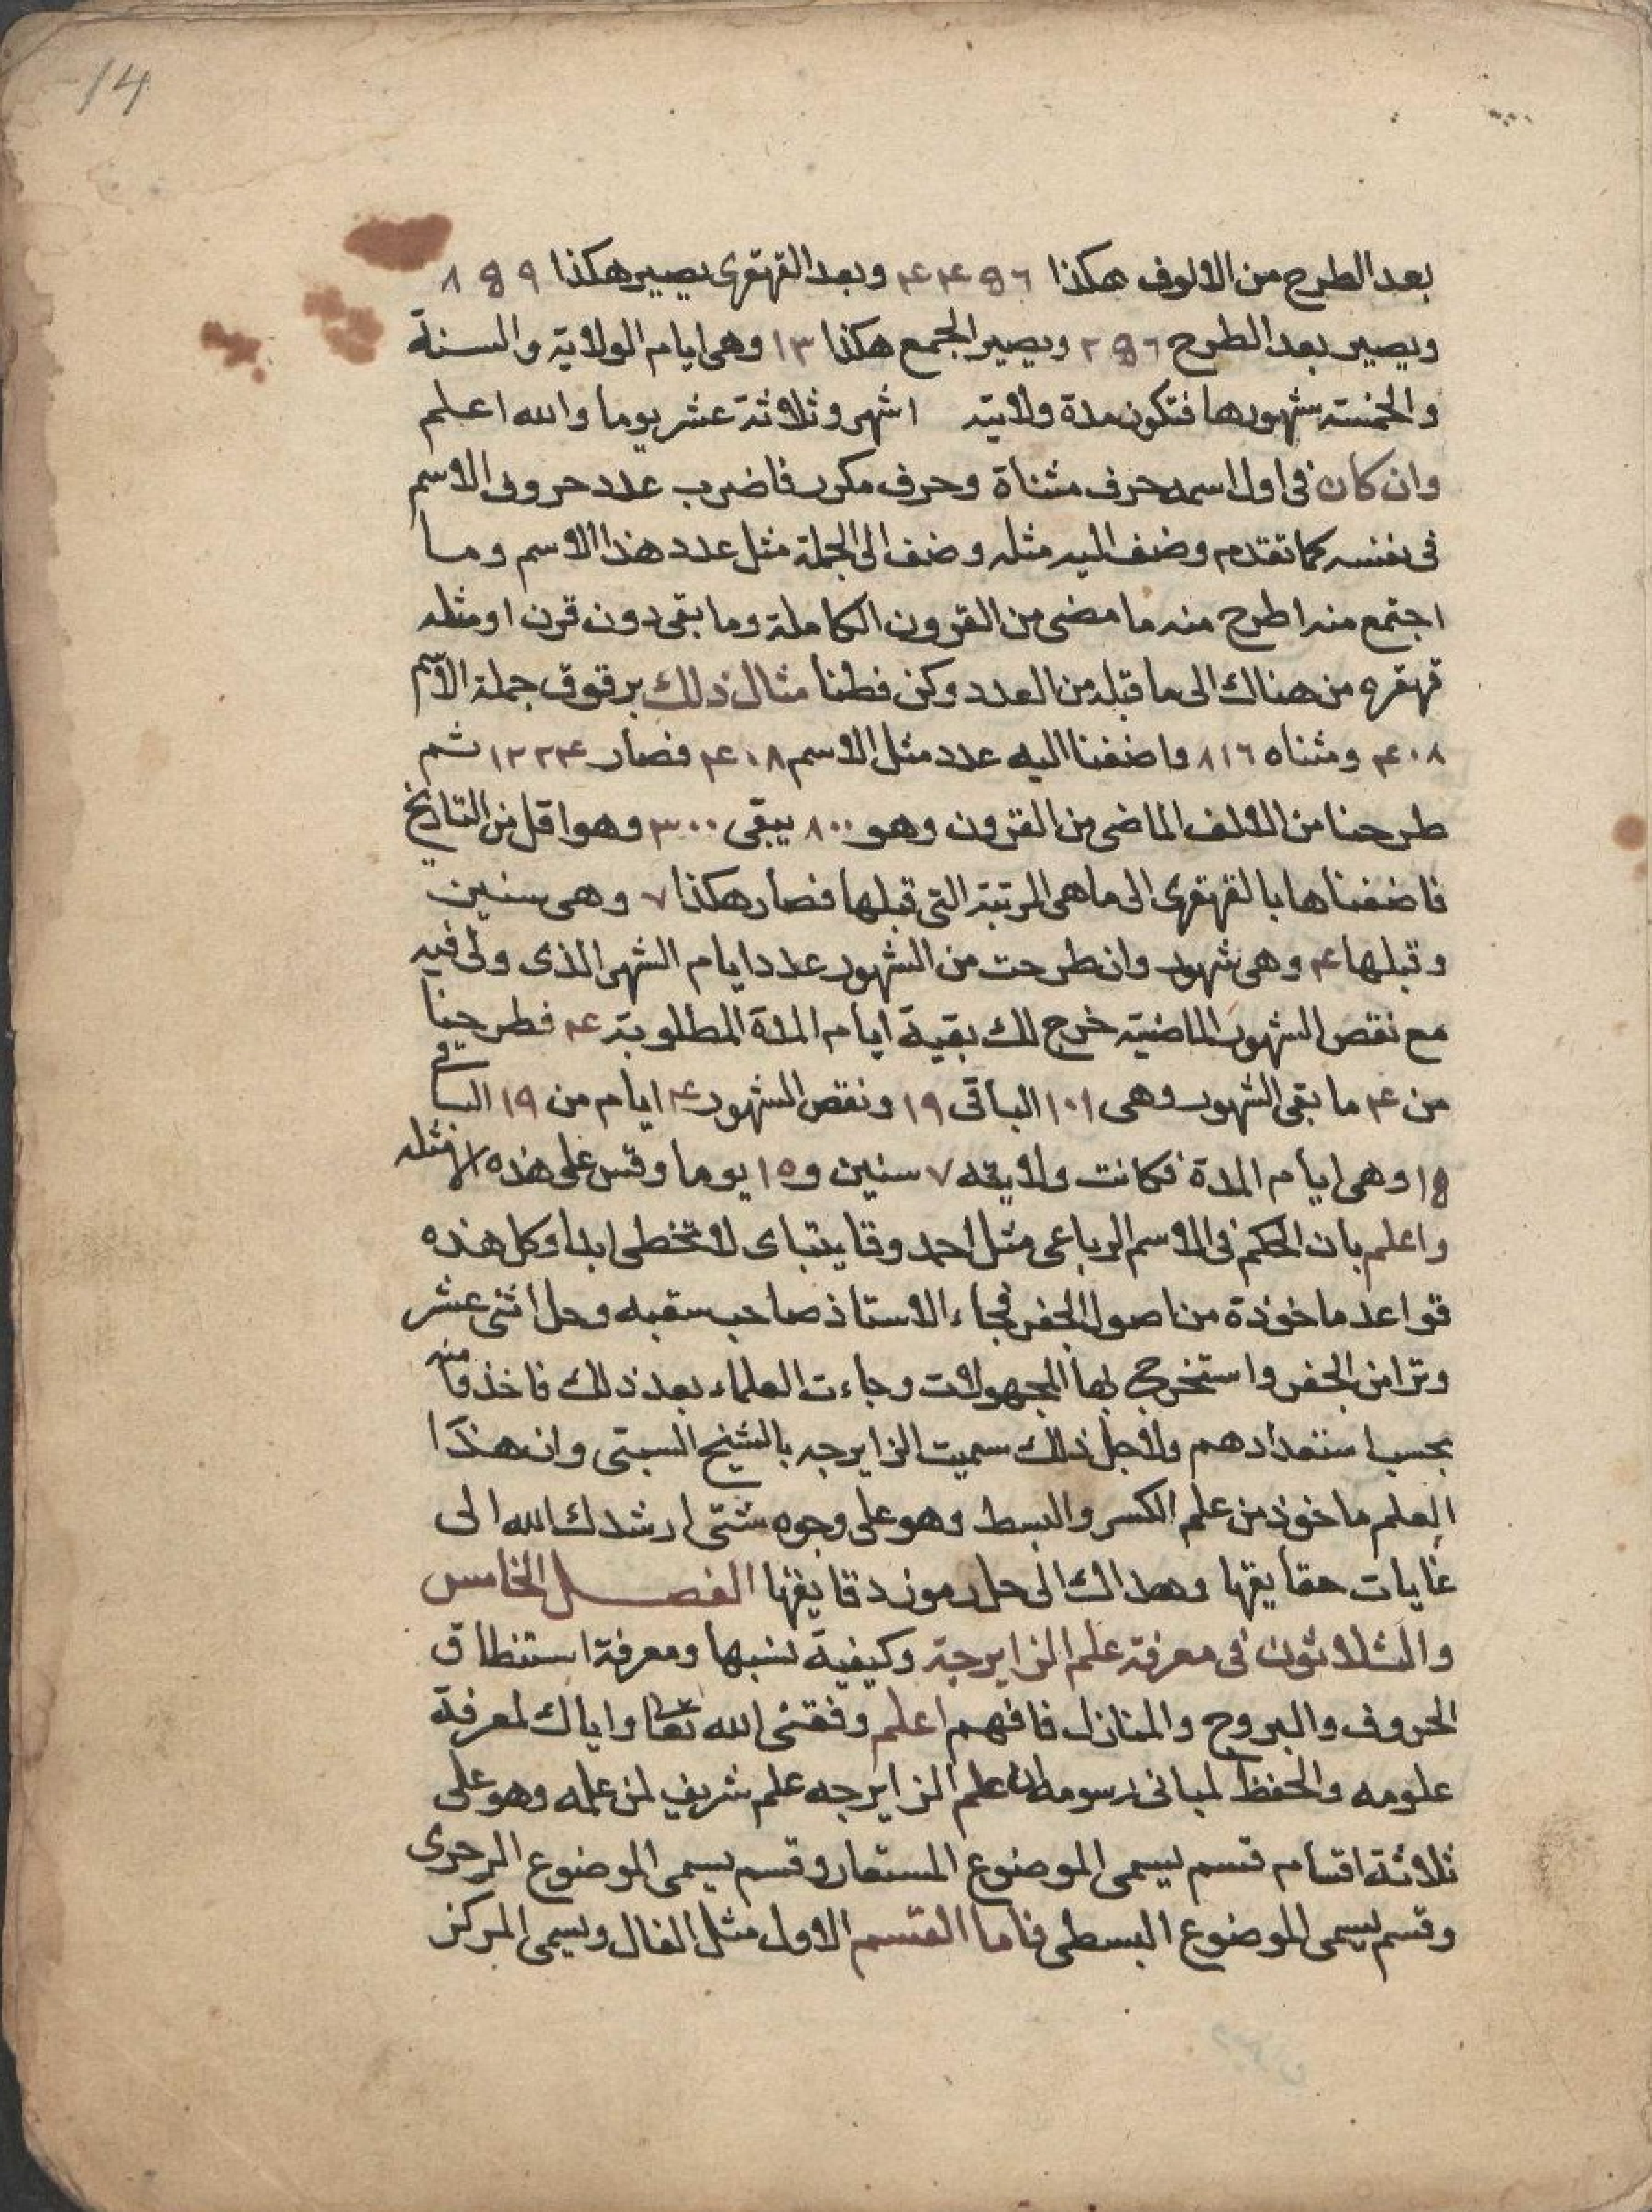 14
بعد الطرح من الالوف هكذا ٤٤٥٦ وبعد القهقرى يصير هكذا ٨٥٩
ويصير بعد الطرح ٢٥٦ ويصير الجمع هكذا ١٣ وهى ايام الولاية والسنة
والخمسة شهورها فتكون مدة ولايته اشهر وثلاثة عشر يوما والله اعلم
وان كان فى اول اسمه حرف مثناة وحرف مكرر فاضرب عدد حروف الاسم
فى نفسه كما تقدم وضف اليه مثله وضف الى الجملة مثل عدد هذا الاسم وما
اجتمع منه اطرح منه ما مضى من القرون الكاملة وما بقى دون قرن او مثله
قهقره من هناك الى ما قبله من العدد وكن فطنا مثال ذلك برقوق جملة الاسم
٤٠٨ ومثناه ٨١٦ واضفنا اليه عدد مثل الاسم ٤٠٨ فصار ١٢٢٤ ثم
طرحنا من الالف الماضى من القرون وهو ٨٠٠ يبقى ٣٠٠ وهو اقل من التاريخ
فاضفناها بالقهقرى الى ما هى المرتبة التى قبلها فصار هكذا ٧ وهى سنين
وقبلها ٤ وهى شهور وان طرحت من الشهور عدد ايام الشهر الذى ولى فيه
مع نقص الشهور الماضية خرج لك بقية ايام المدة المطلوبة ٤ فطرحنا
من ٤ ما بقى الشهور وهى ١٠١ الباقى ١٩ ونقص الشهور ٤ ايام من ١٩ الباقى
١٥ وهى ايام المدة فكانت ولايته ٧ سنين و١٥ يوما وقس على هذه الامثله
واعلم بان الحكم فى الاسم الرباعى مثل احمد وقايتباى لا تخطى ابدا وكل هذه
قواعد ماخوذة من اصول الجفر فجاء الاستاذ صاحب سقبه وحل اثنى عشر
وترا من الجفر واستخرج بها المجهولات وجاءت العلماء بعد ذلك فاخذوا منه
بحسب استعدادهم ولاجل ذلك سميت الزايرجه بالشيخ السبتى وان هذا
العلم ماخوذ من علم الكسر والبسط وهو على وجوه شتى ارشدك الله الى
غايات حقايقها وهداك الى حل رموز دقايقها الفصل الخامس
والثلاثون فى معرفة علم الزايرجة وكيفية نسبها ومعرفة استنطاق
الحروف والبروج والمنازل فافهم اعلم وفقنى الله تعا واياك لمعرفة
علومه والحفظ لمبانى رسومه ان علم الزايرجه علم شريف لمن علمه وهو على
ثلاثة اقسام قسم يسمى الموضوع المستعار وقسم يسمى الموضوع الرحرى
وقسم يسمى الموضوع البسطى فاما القسم الاول مثل الفال ويسمى المركز